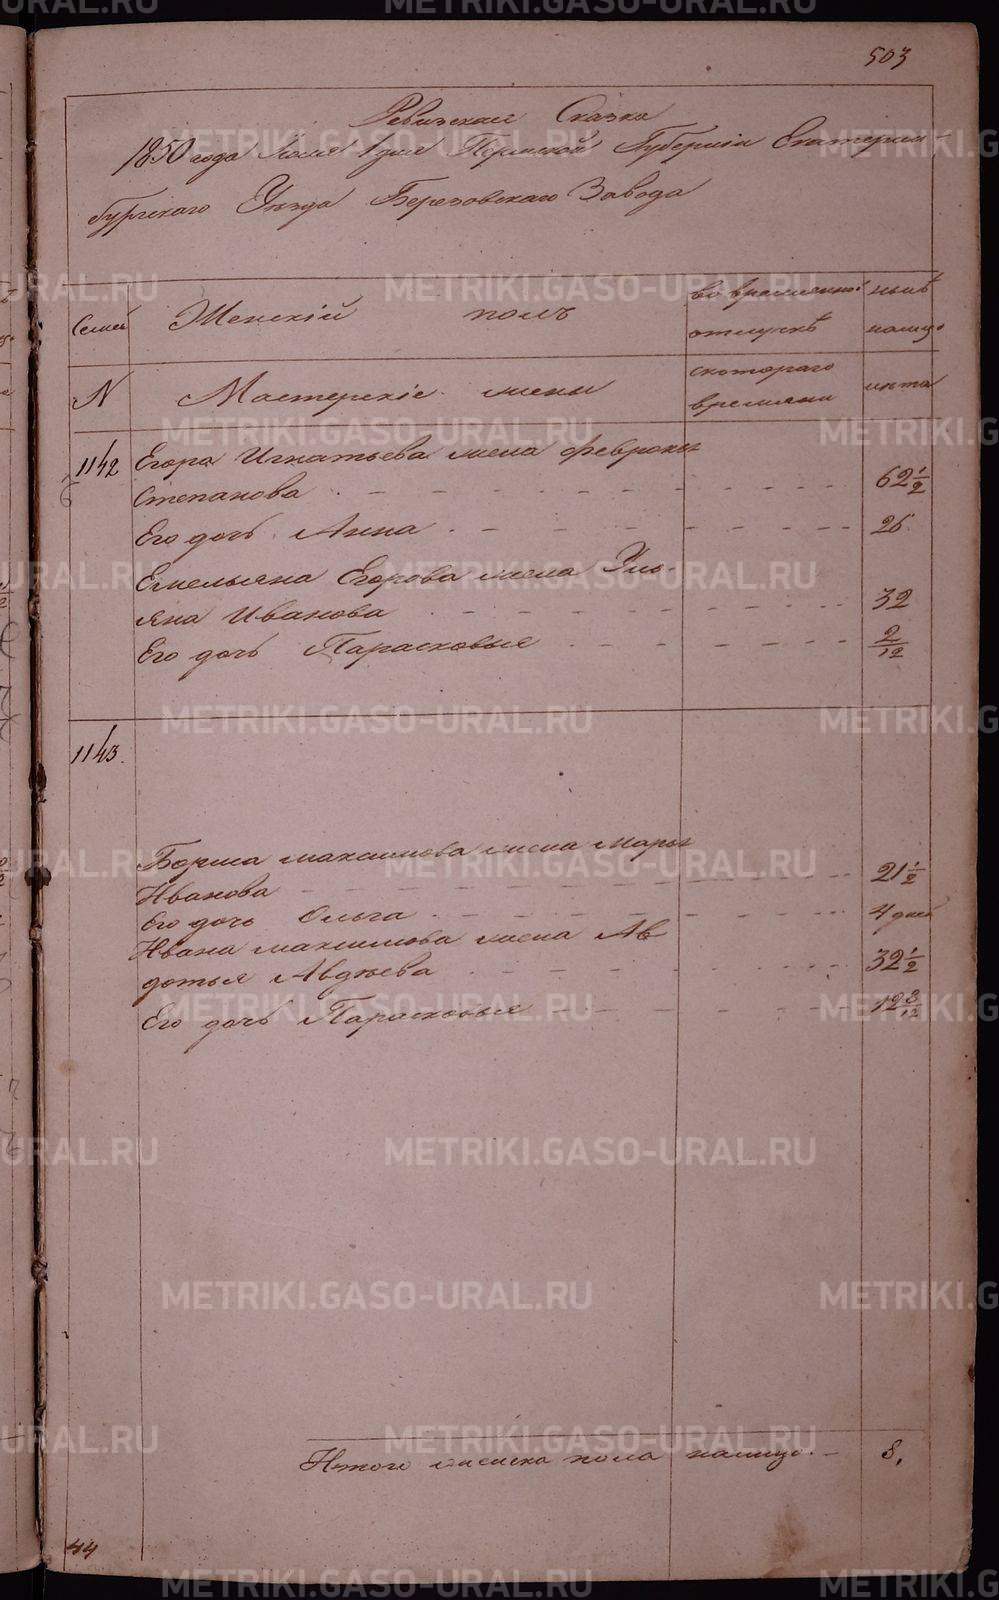 503
Ревизская Сказка
1850 года Маия 1 дня Пермской Губернiи Екатерин
бургского Уѣзда Березовскаго Завода
Семей
Женскiй полъ
во временной
отлучкѣ
нынѣ
налицо
N
Мастерскiе жены
скотораго
времяни
лѣта
1142
Егора Игнатьева жена Февронья
Степанова 62 1/2
Его дочь Анна 26
Емельяна Егорова жена Улья
яна Иванова 32
Его дочь Парасковья 2/12
1143.
Бориса Максимова жена Марья
Иванова 21 1/2
Его дочь Ольга 4 дней
Ивана Максимова жена Ав
дотья Авдѣева 32 1/2
Его дочь Парасковья 12 3/12
Итого женска пола налицо. 8.
44
METRIKI.GASO-URAL.RU